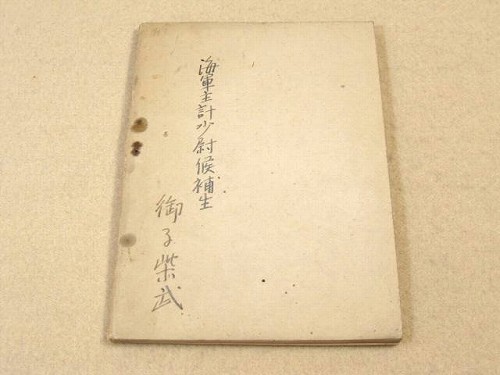 海軍主計少尉候補生
御子柴武